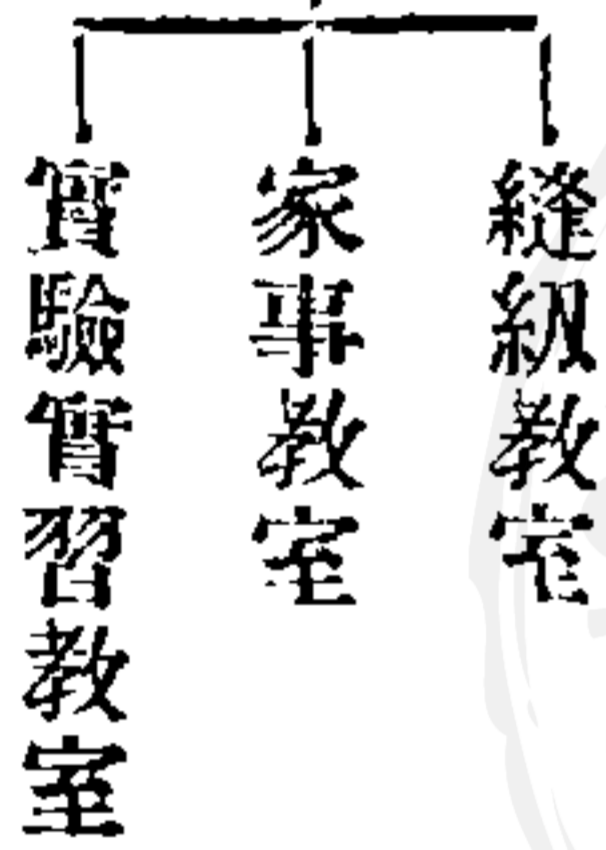 縫級教室
家事教室
實驗實習教室